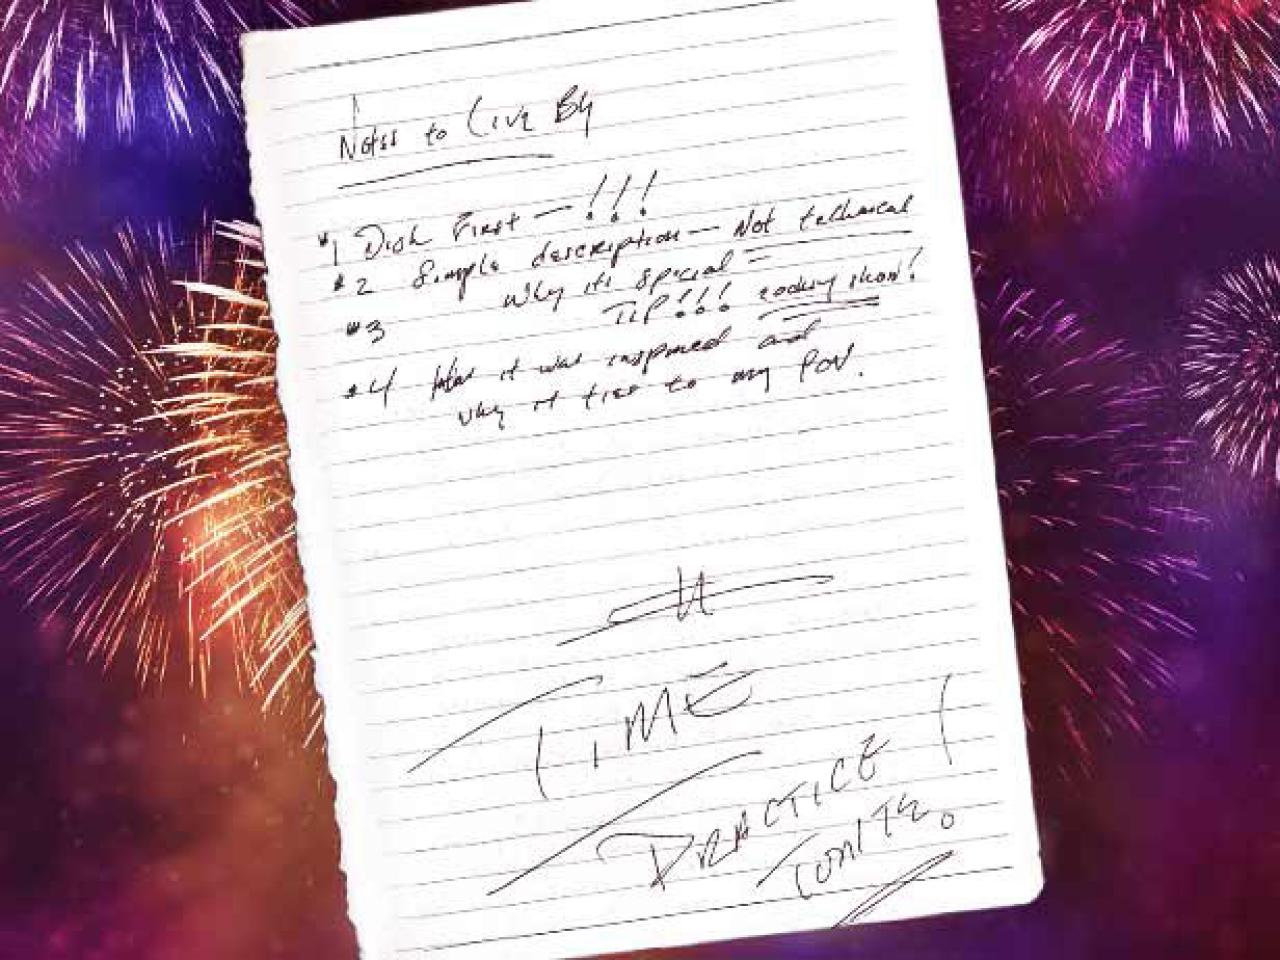 Notes to Live By
#1 Dish First — !!!
#2 Simple description — Not technical
Why its special =
#3 TIP!!! cooking show!
#4 How it was inspired and
why it ties to my POV.
TIME
PRACTICE
TONITE!